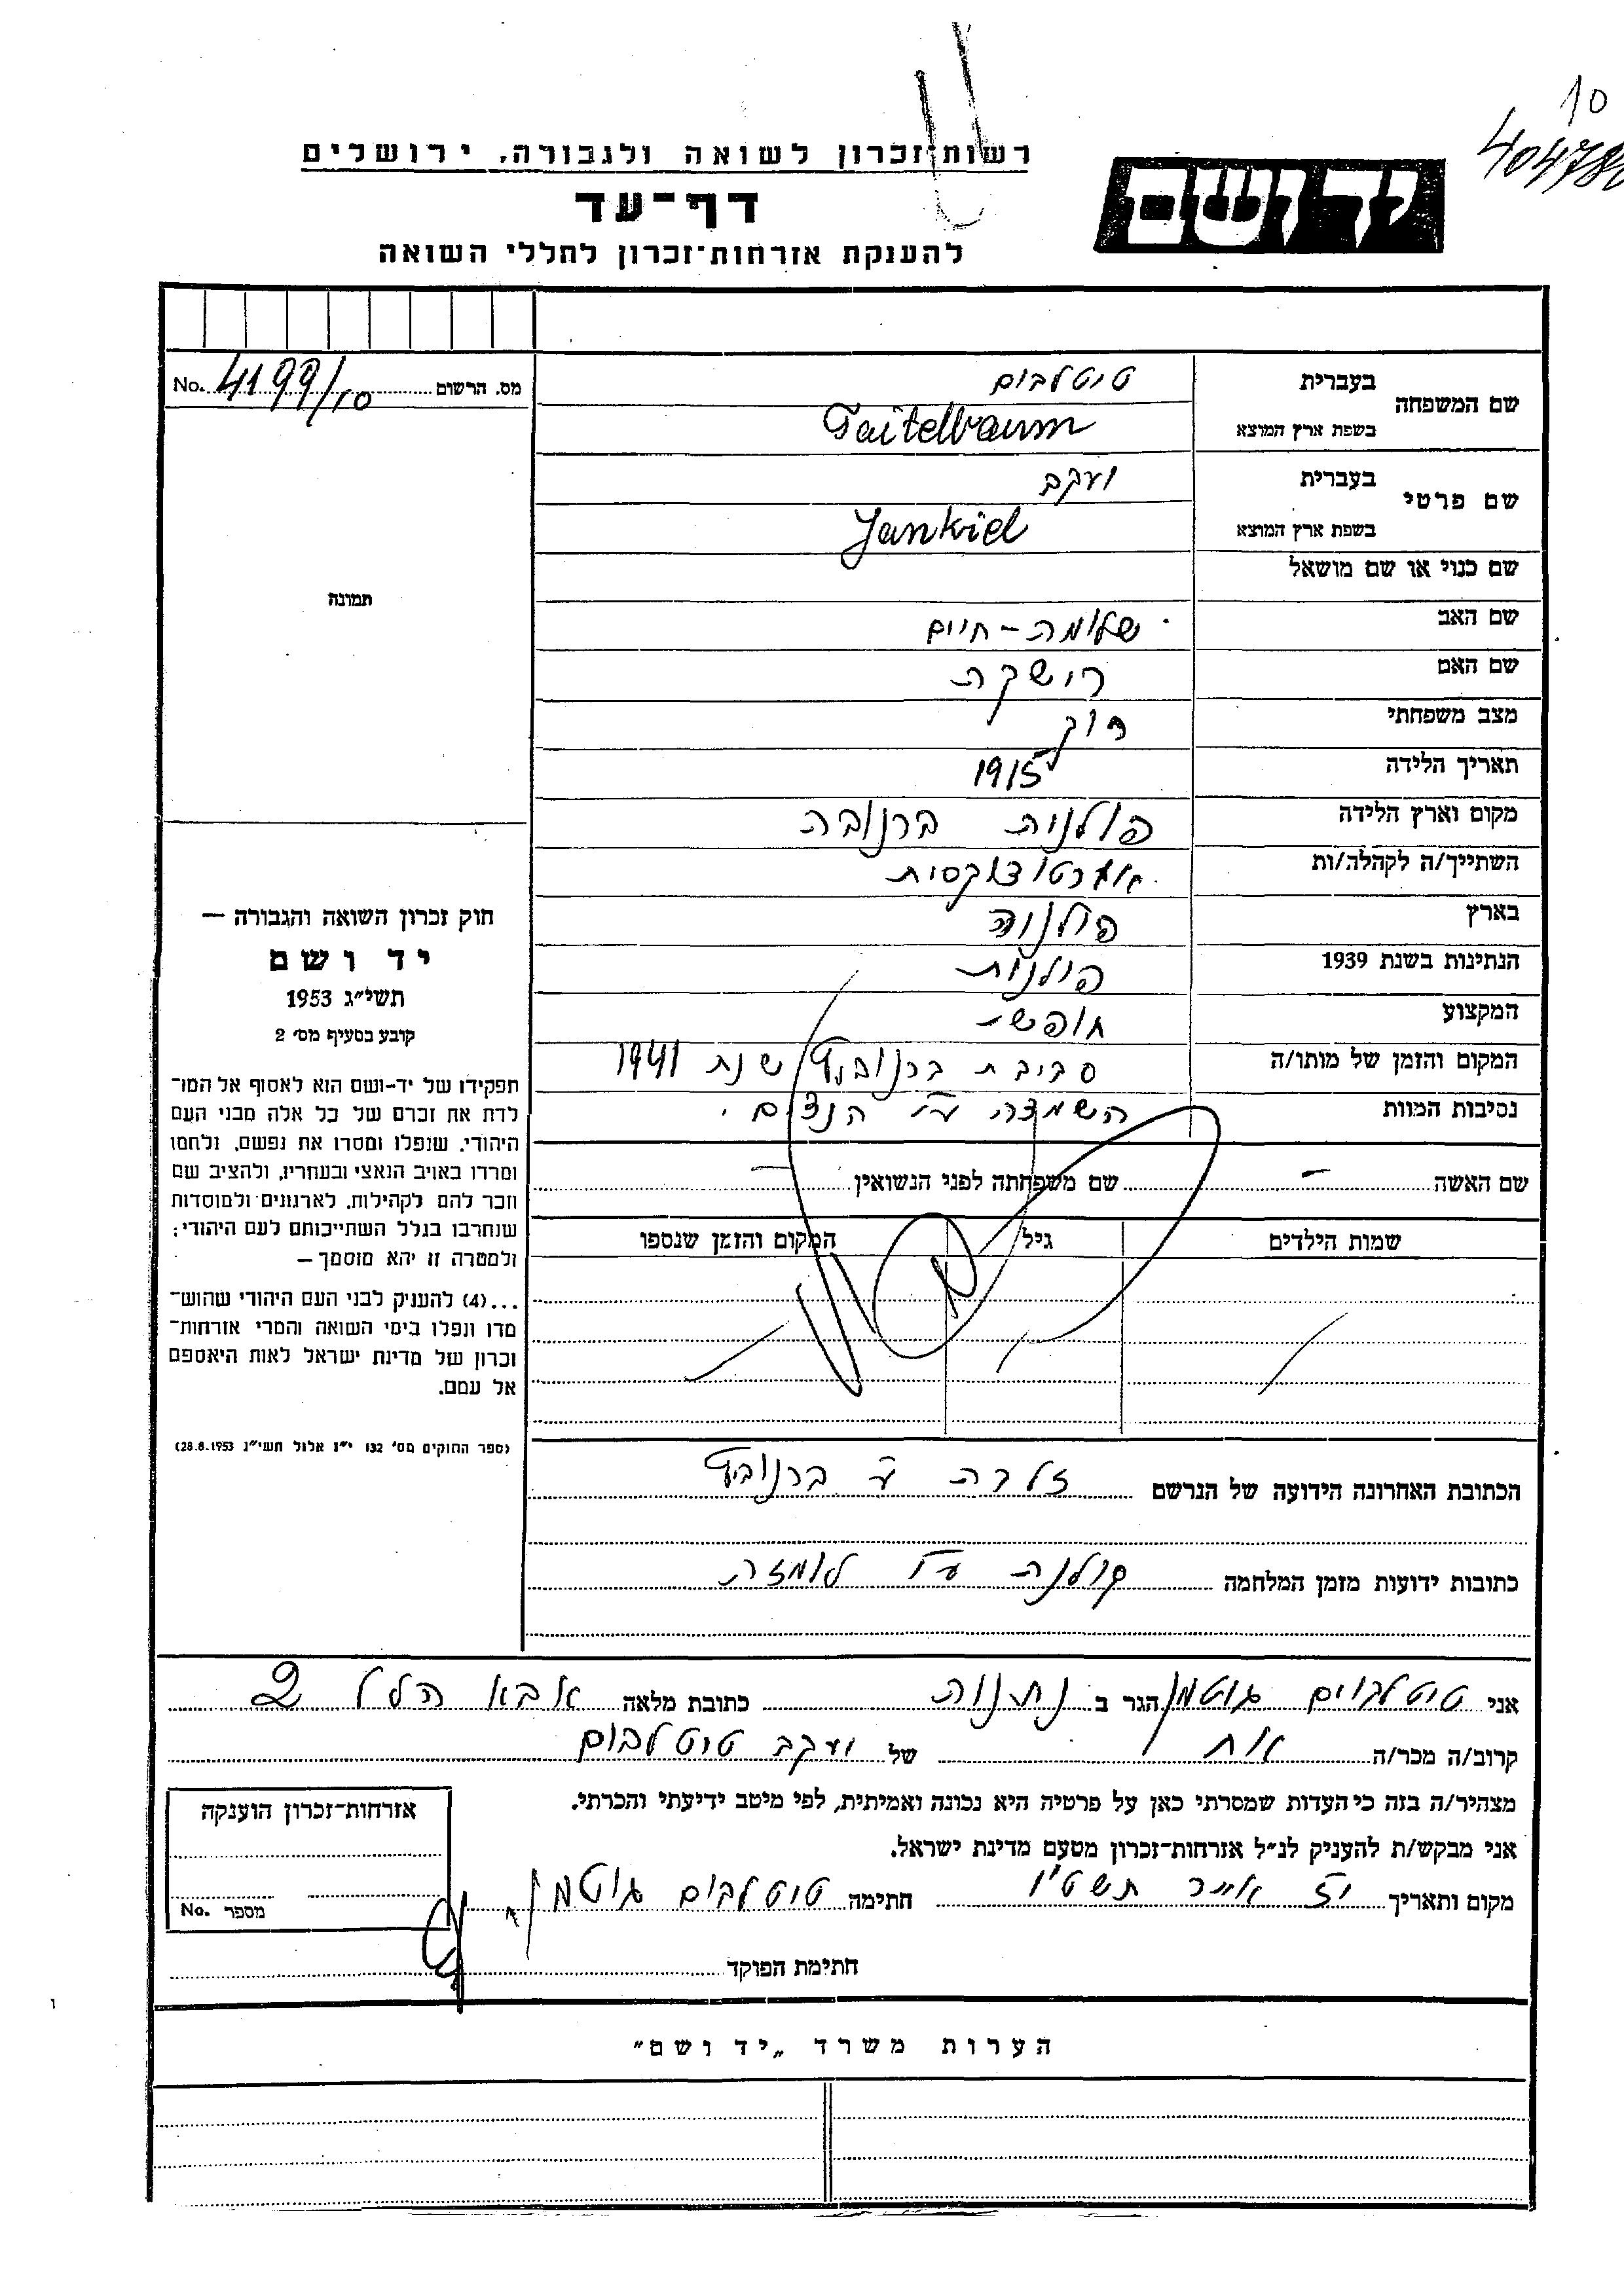 10
404780
רשות־זכרון לשואה ולגבורה, ירושלים
יד ושם
דף־עד
להענקת אזרחות־זכרון לחללי השואה
מס. הרשום No. 4199/10
שם המשפחה בעברית טיטלבום
בשפת ארץ המוצא Taitelbaum
שם פרטי בעברית יעקב
בשפת ארץ המוצא Jankiel
שם כנוי או שם מושאל
תמונה
שם האב שלומה - חיים
שם האם רישקה
מצב משפחתי רוק
תאריך הלידה 1915
מקום וארץ הלידה פולנית ברנובה
השתייך/ה לקהלה/ות
בארץ פולניה
הנתינות בשנת 1939 פולנית
המקצוע חופשי
המקום והזמן של מותו/ה סביבת שנת 1941
נסיבות המוות השמצדה ע״י הנצים.
שם האשה – שם משפחתה לפני הנשואין –
שמות הילדים גיל המקום והזמן שנספו
הכתובת האחרונה הידועה של הנרשם
כתובות ידועות מזמן המלחמה לומזה
חוק זכרון השואה והגבורה —
יד ושם
תשי״ג 1953
קובע בסעיף מס׳ 2
תפקידו של יד-ושם הוא לאסוף אל המו־
לדת את זכרם של כל אלה מבני העם
היהודי, שנפלו ומסרו את נפשם, נלחמו
ומרדו באויב הנאצי ובעוזריו, ולהציב שם
וזכר להם לקהילות, לארגונים ולמוסדות
שנחרבו בגלל השתייכותם לעם היהודי;
ולמטרה זו יהא מוסמך —
...(4) להעניק לבני העם היהודי שהוש־
מדו ונפלו בימי השואה והמרי אזרחות־
זכרון של מדינת ישראל לאות היאספם
אל עמם.
(ספר החוקים מס׳ 132 י״ז אלול תשי״ג 28.8.1953)
אני טיטלבוים גוטמן הגר ב נתניה כתובת מלאה אבא הלל 2
קרוב/ה מכר/ה אח של יעקב טיטלבום
מצהיר/ה בזה כי העדות שמסרתי כאן על פרטיה היא נכונה ואמיתית, לפי מיטב ידיעתי והכרתי.
אני מבקש/ת להעניק לנ״ל אזרחות־זכרון מטעם מדינת ישראל.
מקום ותאריך יז אייר תשט״ו חתימה טיטלבום גוטמן
חתימת הפוקד
אזרחות־זכרון הוענקה
מספר No.
הערות משרד „יד ושם״